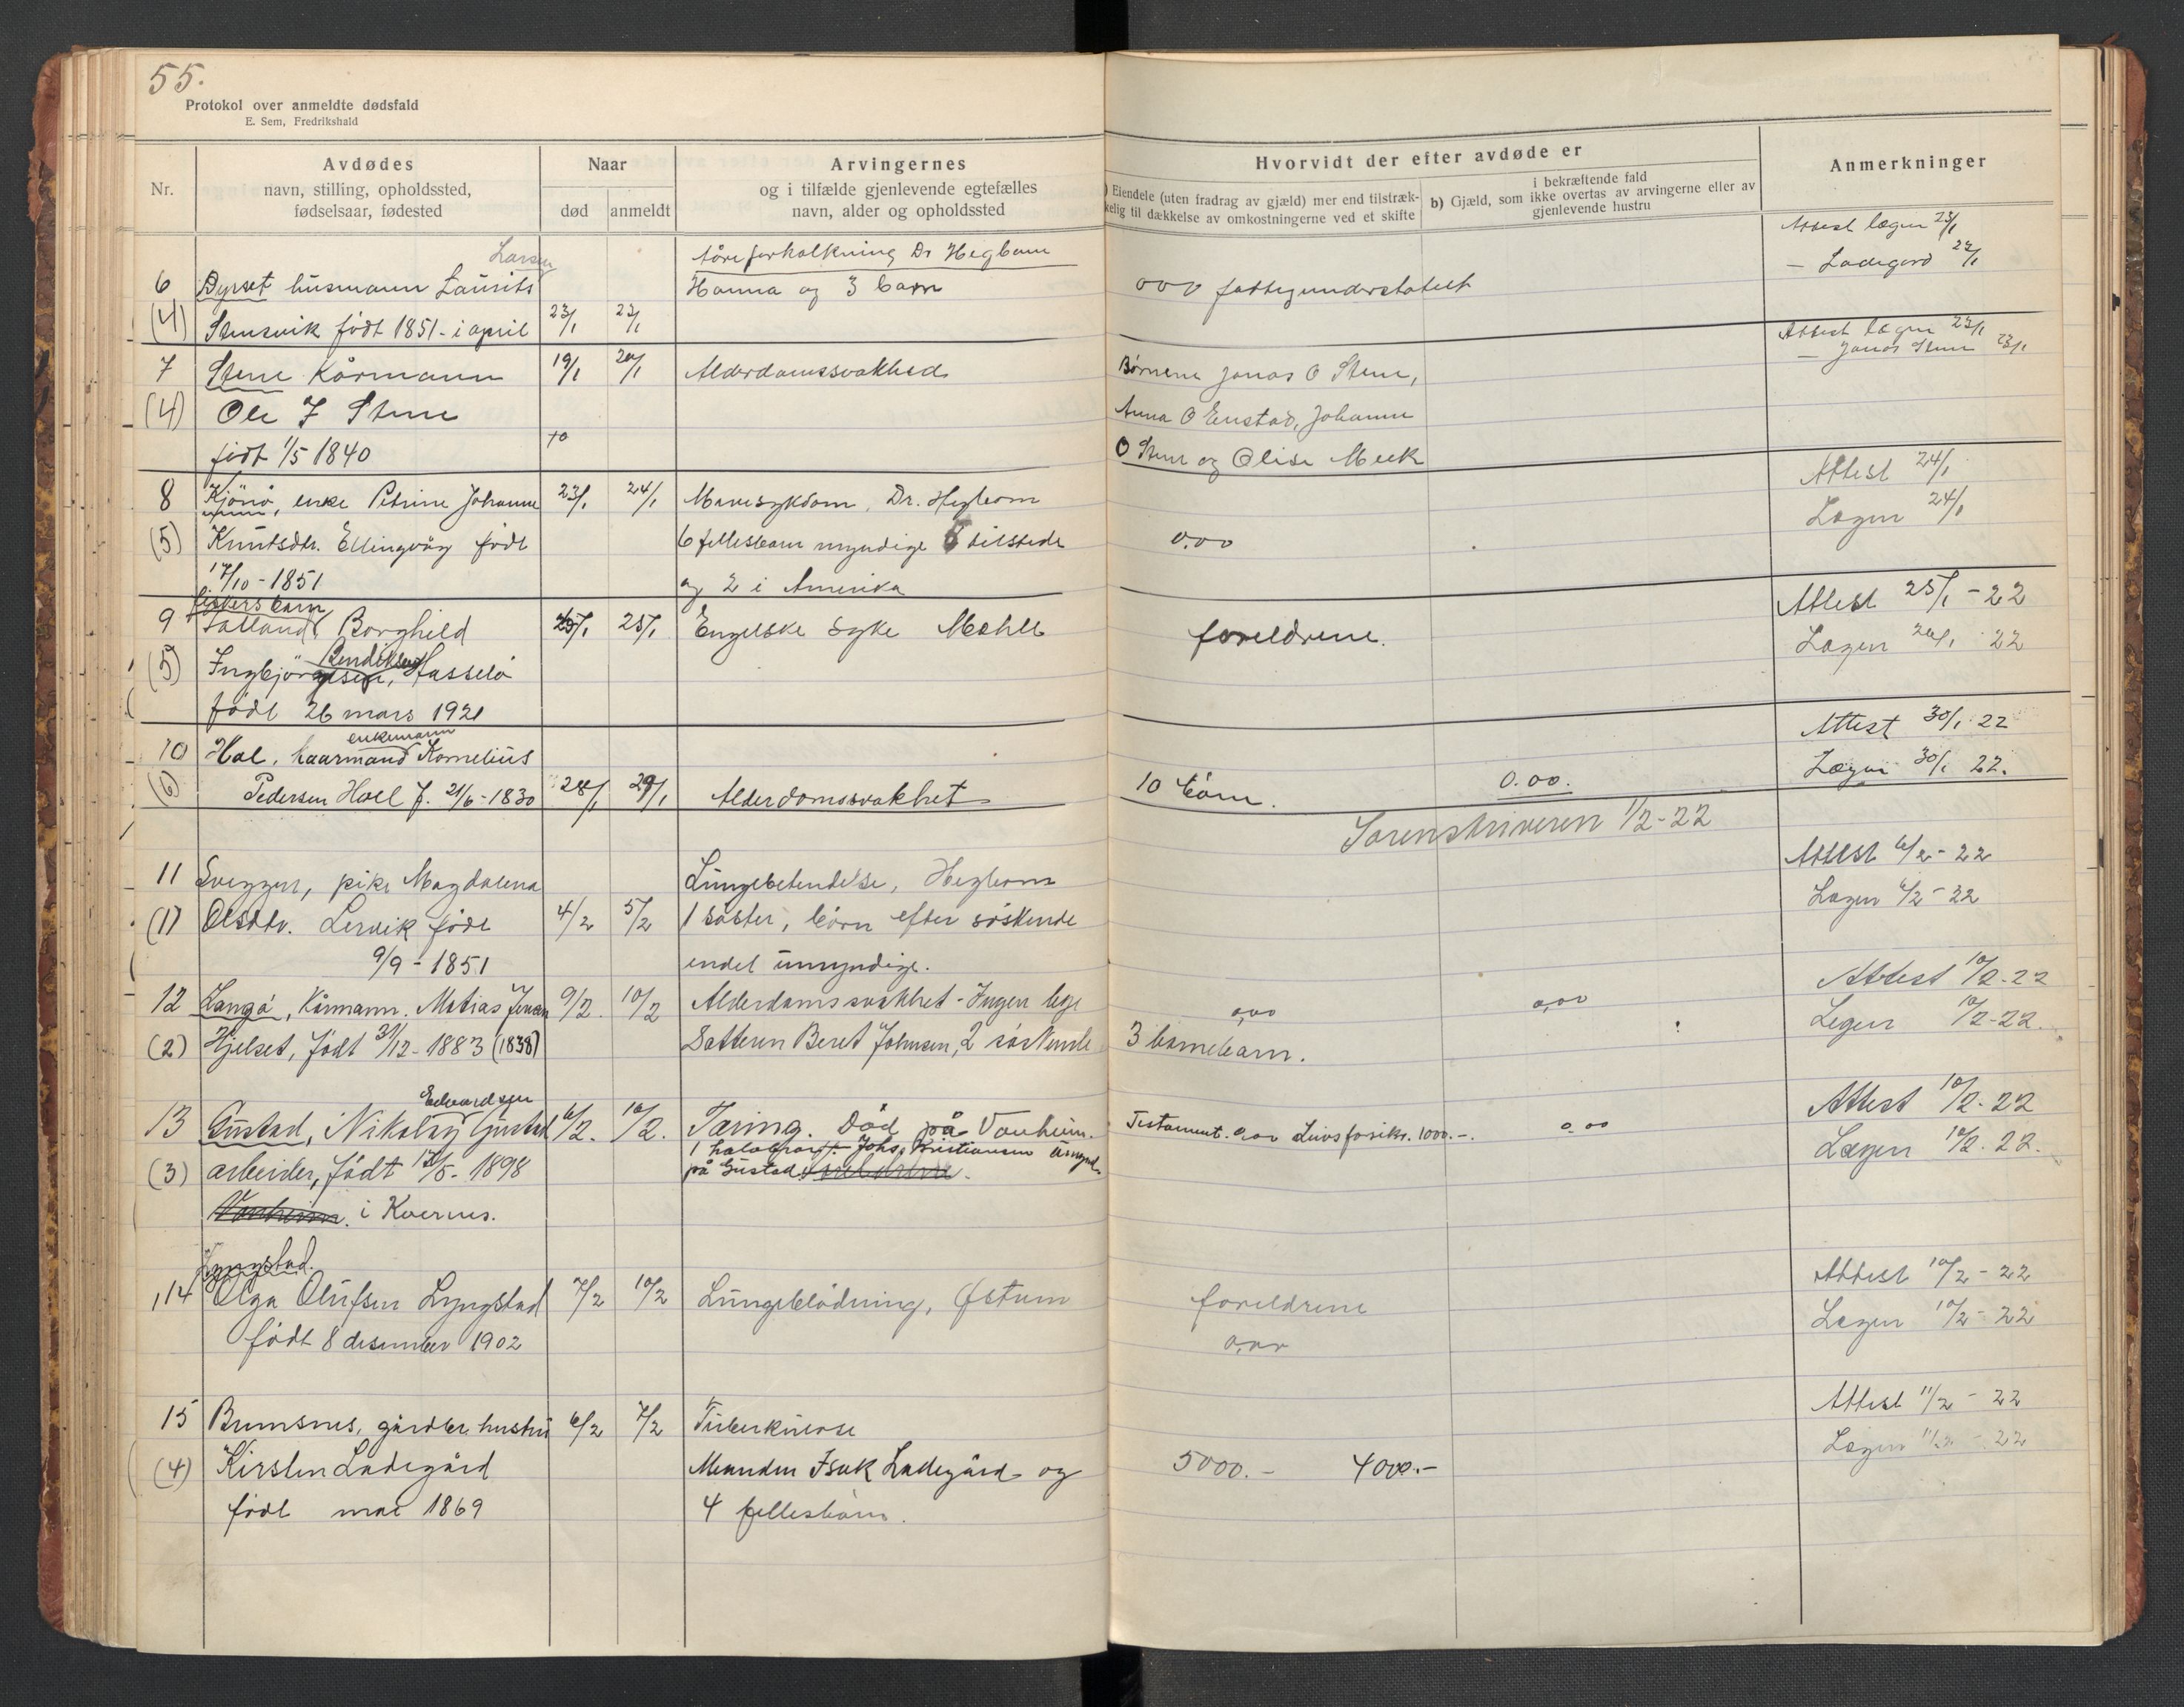 55.
Protokol over anmeldte dødsfald
E. Sem, Fredrikshald
Nr.
Avdødes
navn, stilling, opholdssted,
fødselsaar, fødested
Naar
død
anmeldt
Arvingernes
og i tilfælde gjenlevende egtefælles
navn, alder og opholdssted
Hvorvidt der efter avdøde er
Eiendele (uten fradrag av gjæld) mer end tilstræk-
kelig til dækkelse av omkostningerne ved et skifte
b) Gjæld, som ikke overtas av arvingerne eller av
i bekræftende fald
gjenlevende hustru
Anmerkninger
Larsen åreforkalkning Dr Hegbom Attest lægen 23/1
6 Dyrset husmann Laurits Hanna og 3 barn 000 fattigunderstøttet – Ladegård 23/1
(4) Stensvik født 1851 - i april 23/1 23/1
7 Stene Kårmann 19/1 20/1 Alderdomssvakhed Børnene Jonas O Stene, Attest lægen 23/1
– Jonas Stene 23/1
(4) Ole J Stene Anna O Enstad, Johanne
født 1/5 1840 O Stene og Olise Meek
8 Kjönö, enke Petrine Johanne 23/1 24/1 Mavesykdom, Dr. Hegbom Attest 24/1
(5) Knutsdtr. Ellingvåg født 6 fellesbarn myndige tilstede 0.00 Lægen 24/1
17/10 - 1851 og 2 i Amerika
fiskers barn
9 Borghild 25/1 25/1 Engelske syke Mohle foreldrene. Attest 25/1 - 22
(5) Ingbjörg Bendiksen, Hasselö Lægen 22
født 26 mars 1921
enkemann
10 Hol, kaarmand Kornelius Attest 30/1 22
(6) Pedersen Holl f. 21/6 - 1830 28/1 29/1 Alderdomssvakhet 10 börn. 0.00. Lægen 30/1 22.
Sorenskriveren 1/2-22
11 Sveggen, pike Magdalena Lungebetendelse, Hegbom Attest 6/2 - 22
(1) Olsdtr. Lervik født 4/2 5/2 1 söster, börn efter söskende Lægen 6/2 - 22
9/9 - 1851 endel umyndige.
12 Langö, Kårmann. Matias Jensen 9/2. 10/2 Alderdomssvakhet - Ingen lege 0,00 0,00 Attest 10/2-22
(2) Hjelset, født 31/12 - 1883 (1838) Datteren Beret Johnsen, 2 söskende 3 barnebarn. Legen 10/2-22.
Edvardsen
13 Gustad, Nikolay Gustad 6/2. 10/2. Tæring. Död på Vonheim. Testament. 0.00 Livsforsikr. 1000.-. 0.00 Attest 10/2-22
1 halvbror Johs. Kristiansen umynd.
(3) arbeider, født 12/5 - 1898 på Gustad. foreldrene. Lægen 10/2. 22.
Vonheim. i Kvernes.
Lyngstad.
14 Olga Olufsen Lyngstad 7/2 10/2 Lungeblödning, Östum foreldrene Attest 10/2 - 22
født 8 desember 1902 0,00 Lægen 10/2 - 22
15 Bremsnes, gårdbr. hustru 6/2 7/2 Tuberkulose Attest 11/2 - 22
(4) Kirsten Ladegård Manden Isak Ladegård og 5000.- 4000.- Lægen 11/2 - 22
født mai 1869 4 fellesbarn.